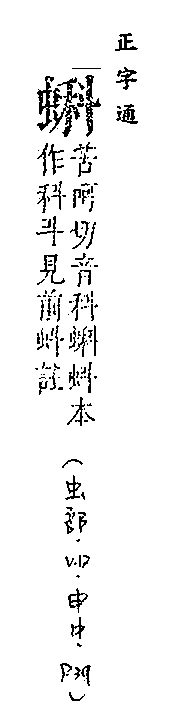 正字通
蝌
苦呵切音科蝌蚪本
作科斗見前蚪註
(虫部.VD.申中.P39)